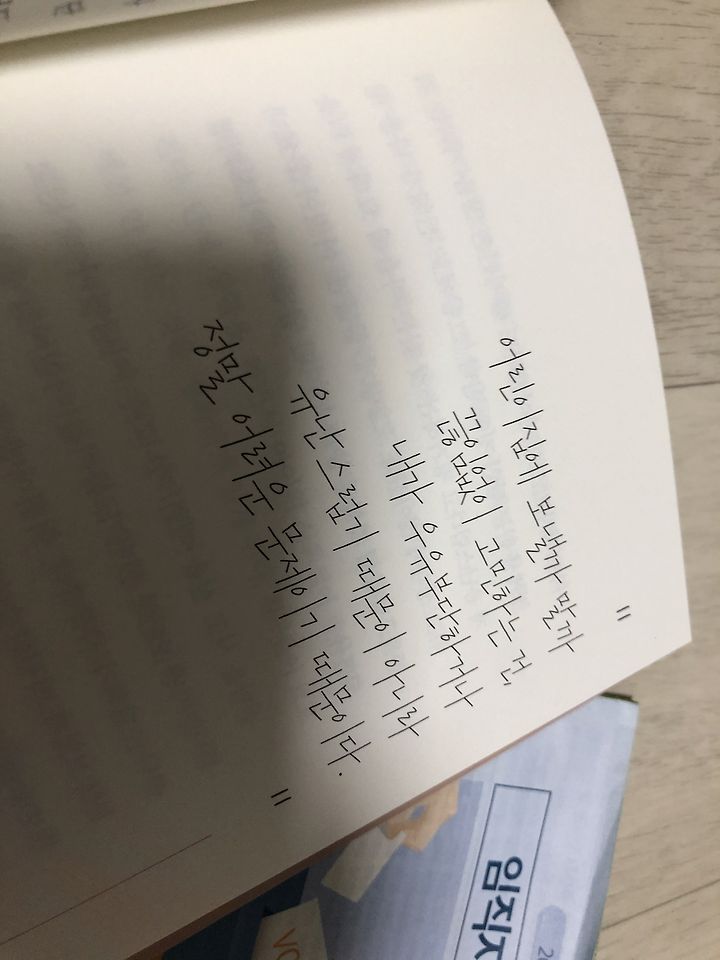 "
어린이집에 보낼까 말까
끊임없이 고민하는 건
내가 우유부단하거나
유난스럽기 때문이 아니라
정말 어려운 문제이기 때문이다.
"
임직